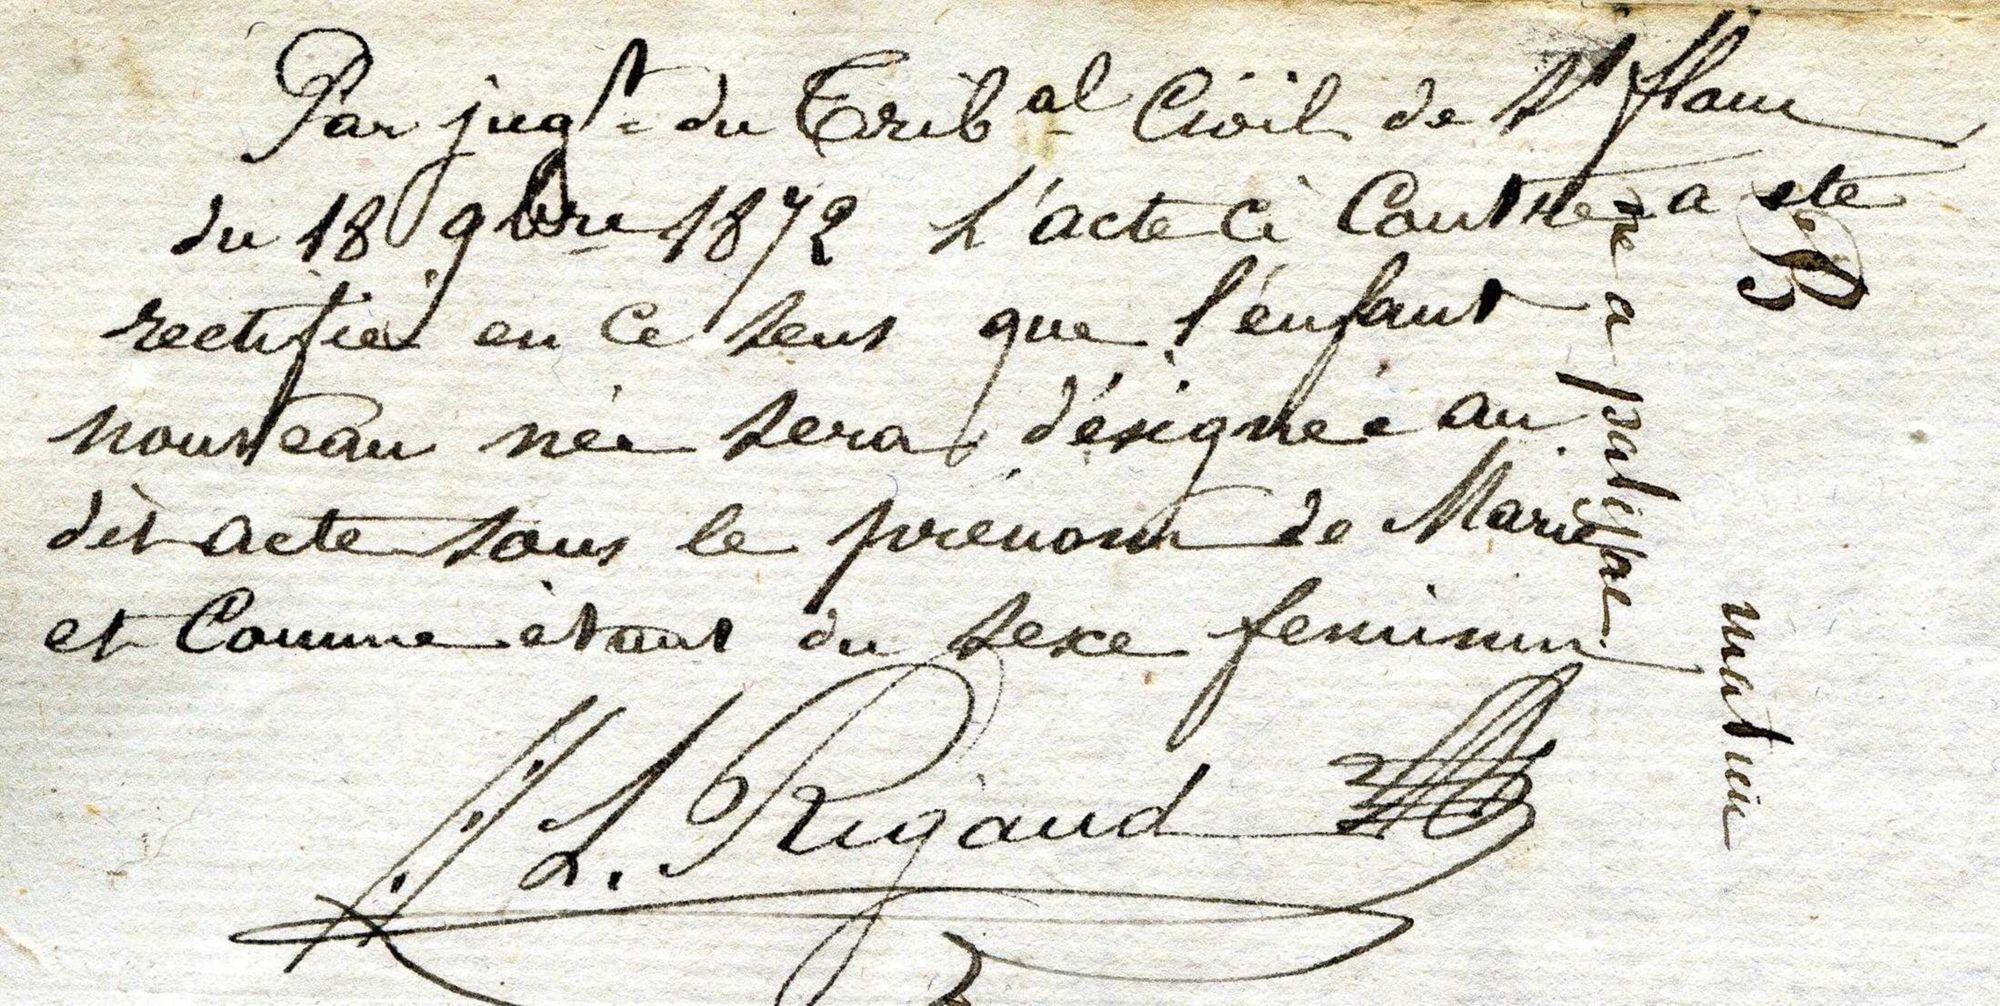 Par jugt du Tribal Civil de St flour
du 18 9bre 1872 l'acte Ci Contre a eté
rectifié en Ce sens que l'enfant
nouveau née sera désignée au
dit acte sous le prénom de Marie
et Comme étant du sexe feminin
L. Rigaud
a
matieu